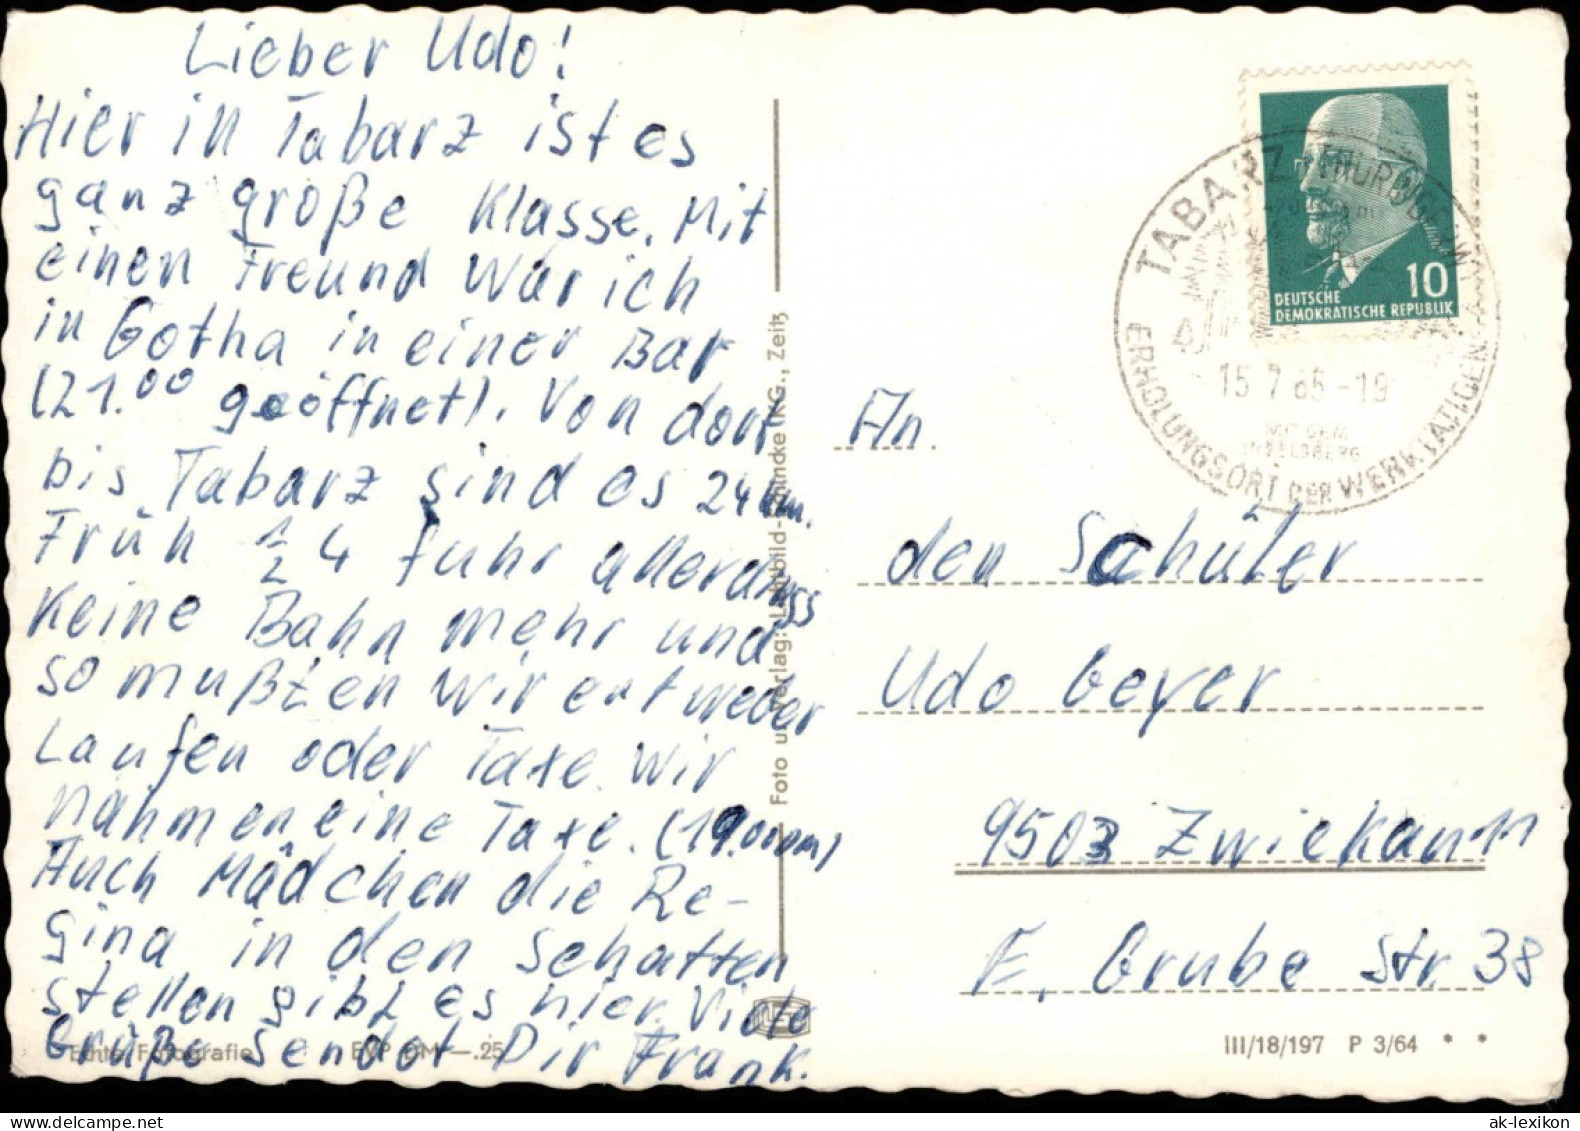 Lieber Udo!
Hier in Tabarz ist es
ganz große Klasse. Mit
einen Freund war ich
in Gotha in einer Bar
(21.00 geöffnet). Von dort
bis Tabarz sind es 24 km.
Früh 1/2 4 fuhr allerdings
keine Bahn mehr und
so mußten wir entweder
Laufen oder Taxe. Wir
nahmen eine Taxe. (19.00 DM)
Auch Mädchen die Re-
gina in den Schatten
stellen gibt es hier. Viele
Grüße sendet Dir Frank.
Echte Fotografie EVP DM —.25
Foto u. Verlag: Lichtbild-Schincke KG., Zeitz
TABARZ THÜRINGEN
ERHOLUNGSORT DER WERKTÄTIGEN
15.7.65-19
MIT DEM
INSELSBERG
10
DEUTSCHE
DEMOKRATISCHE REPUBLIK
An
den Schüler
Udo Geyer
9503 Zwickau 11
E. Grube Str. 38
III/18/197 P 3/64 * *
ak-lexikon